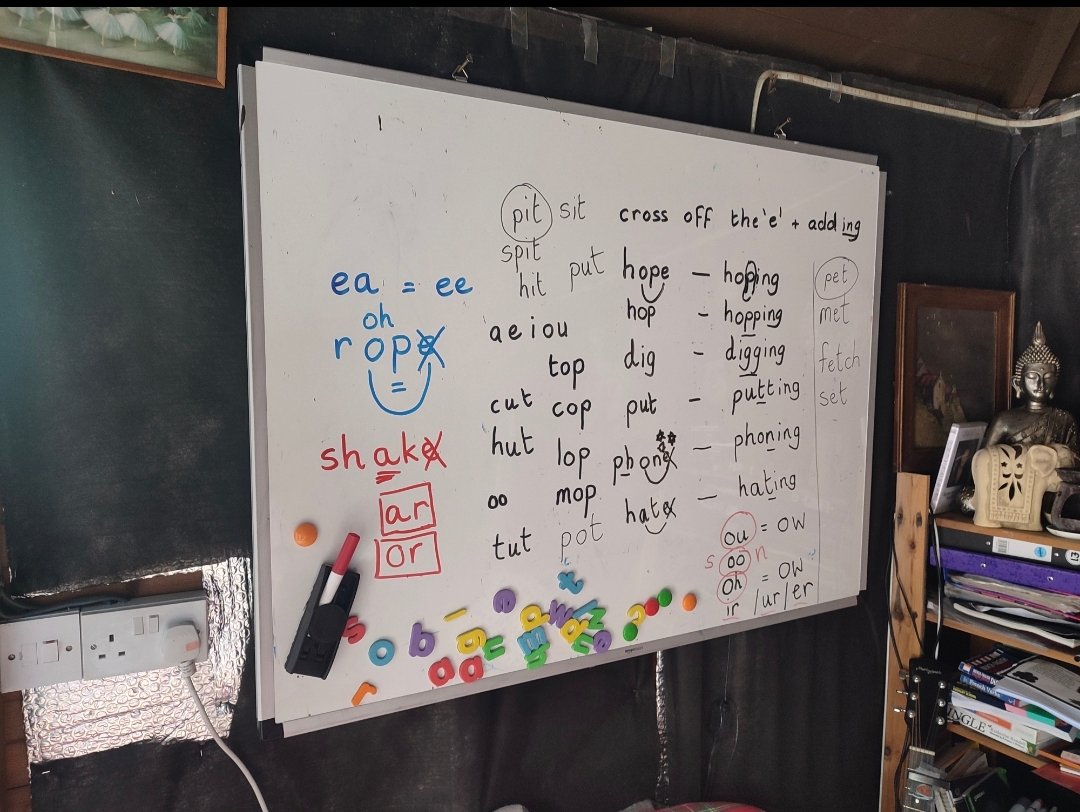 pit sit
spit
hit put
cross off the 'e' + adding
ea = ee
oh
rope
=
shake
ar
or
a e i o u
cut
hut
oo
tut
top
cop
lop
mop
pot
hope - hoping
hop - hopping
dig - digging
put - putting
phone - phoning
hate - hating
pet
met
fetch
set
ou = ow
s oo n
oh = ow
ir /ur/er